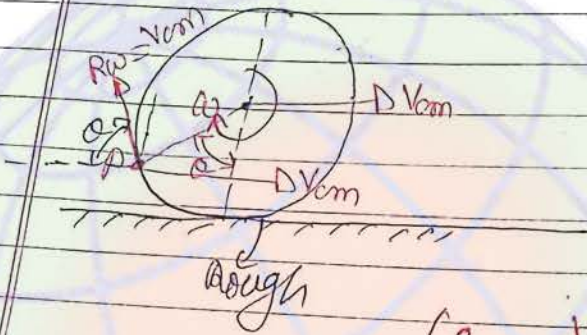 Rω = Vcm
ω
Vcm
θ
P
θ
Vcm
Rough